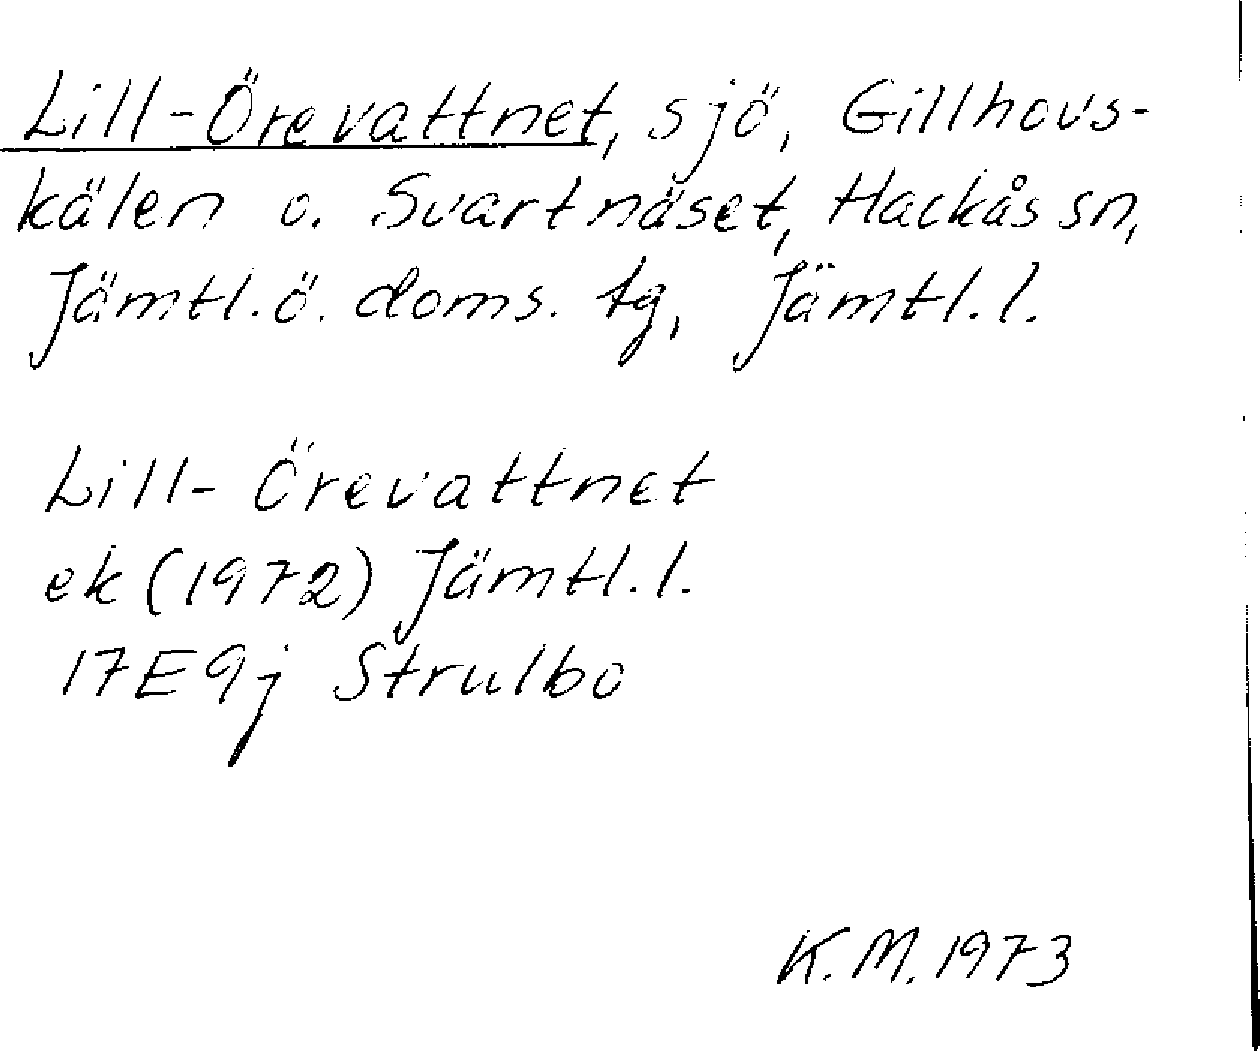 Lill-Örevattnet, sjö, Gillhovs-
kälen o. Svartnäset, Hackås sn,
Jämtl. ö. doms. tg, Jämtl. l.
Lill-Örevattnet
ek (1972) Jämtl. l.
17E9j Strulbo
K. M. 1973